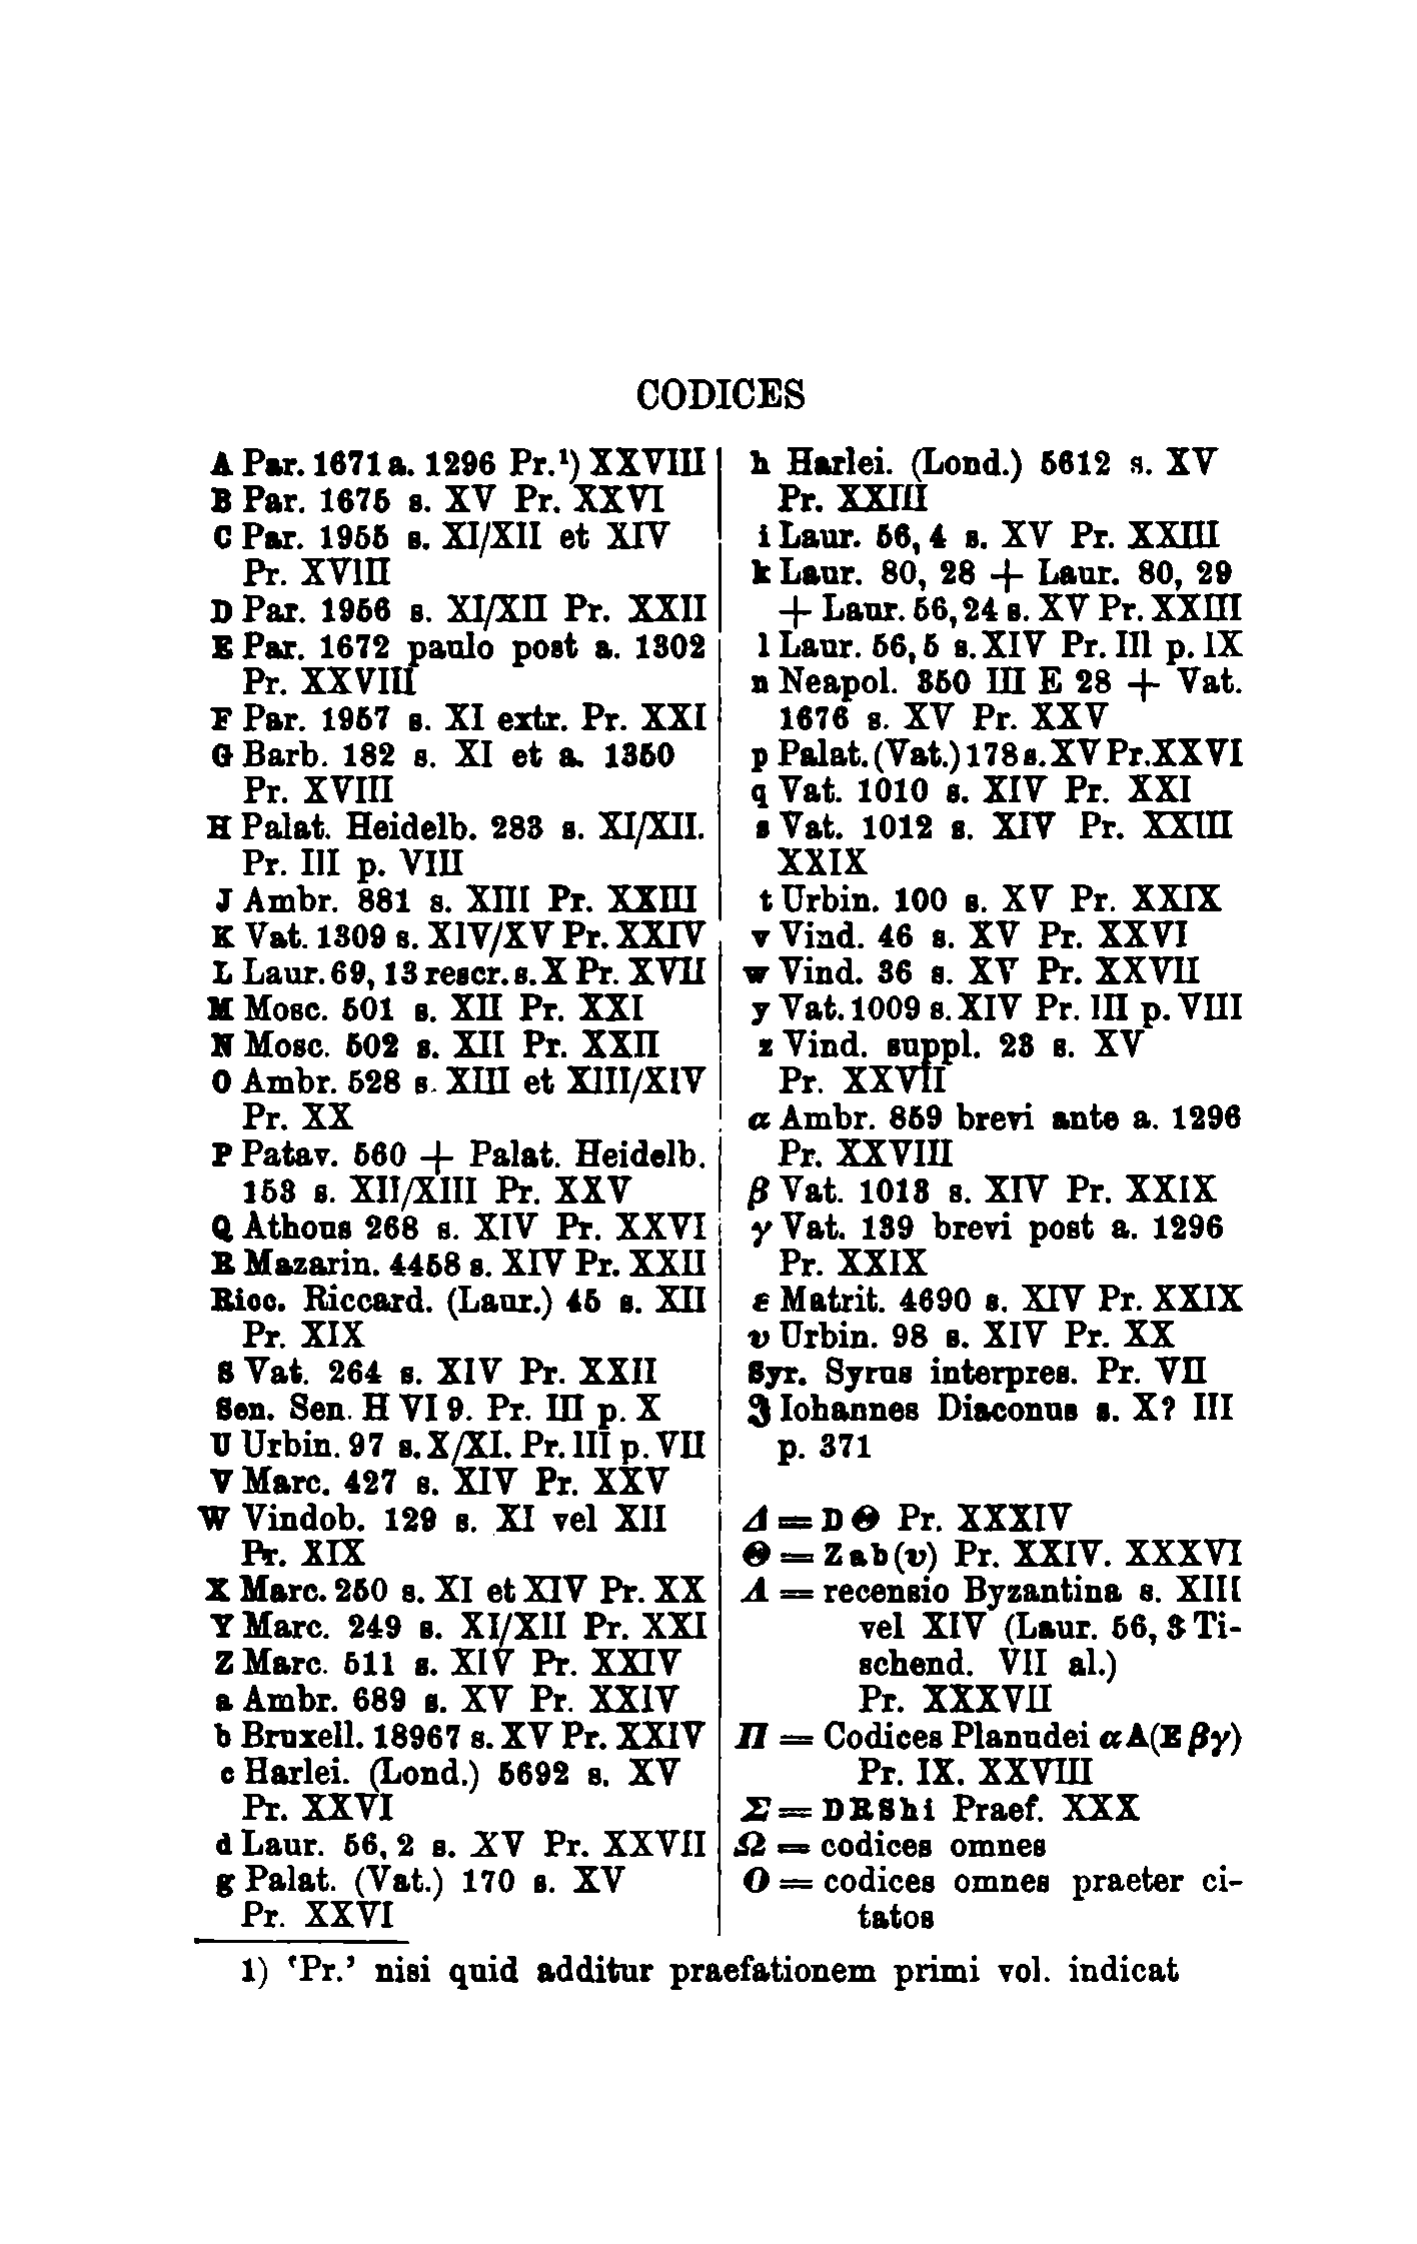 CODICES
A Par. 1671 a. 1296 Pr.¹) XXVIII
B Par. 1675 s. XV Pr. XXVI
C Par. 1955 s. XI/XII et XIV
Pr. XVIII
D Par. 1956 s. XI/XII Pr. XXII
E Par. 1672 paulo post a. 1302
Pr. XXVIII
F Par. 1957 s. XI extr. Pr. XXI
G Barb. 182 s. XI et a. 1350
Pr. XVIII
H Palat. Heidelb. 283 s. XI/XII.
Pr. III p. VIII
J Ambr. 881 s. XIII Pr. XXIII
K Vat. 1309 s. XIV/XV Pr. XXIV
L Laur. 69, 13 rescr. s. X Pr. XVII
M Mosc. 501 s. XII Pr. XXI
N Mosc. 502 s. XII Pr. XXII
O Ambr. 528 s. XIII et XIII/XIV
Pr. XX
P Patav. 560 + Palat. Heidelb.
153 s. XII/XIII Pr. XXV
Q Athous 268 s. XIV Pr. XXVI
R Mazarin. 4458 s. XIV Pr. XXII
Ricc. Riccard. (Laur.) 45 s. XII
Pr. XIX
S Vat. 264 s. XIV Pr. XXII
Sen. Sen. H VI 9. Pr. III p. X
U Urbin. 97 s. X/XI. Pr. III p. VII
V Marc. 427 s. XIV Pr. XXV
W Vindob. 129 s. XI vel XII
Pr. XIX
X Marc. 250 s. XI et XIV Pr. XX
Y Marc. 249 s. XI/XII Pr. XXI
Z Marc. 511 s. XIV Pr. XXIV
a Ambr. 689 s. XV Pr. XXIV
b Bruxell. 18967 s. XV Pr. XXIV
c Harlei. (Lond.) 5692 s. XV
Pr. XXVI
d Laur. 56, 2 s. XV Pr. XXVII
g Palat. (Vat.) 170 s. XV
Pr. XXVI
h Harlei. (Lond.) 5612 s. XV
Pr. XXIII
i Laur. 56, 4 s. XV Pr. XXIII
k Laur. 80, 28 + Laur. 80, 29
+ Laur. 56, 24 s. XV Pr. XXIII
l Laur. 56, 5 s. XIV Pr. III p. IX
n Neapol. 350 III E 28 + Vat.
1676 s. XV Pr. XXV
p Palat. (Vat.) 178 s. XV Pr. XXVI
q Vat. 1010 s. XIV Pr. XXI
s Vat. 1012 s. XIV Pr. XXIII
XXIX
t Urbin. 100 s. XV Pr. XXIX
v Vind. 46 s. XV Pr. XXVI
w Vind. 36 s. XV Pr. XXVII
y Vat. 1009 s. XIV Pr. III p. VIII
z Vind. suppl. 23 s. XV
Pr. XXVII
α Ambr. 859 brevi ante a. 1296
Pr. XXVIII
β Vat. 1013 s. XIV Pr. XXIX
γ Vat. 139 brevi post a. 1296
Pr. XXIX
ε Matrit. 4690 s. XIV Pr. XXIX
υ Urbin. 98 s. XIV Pr. XX
Syr. Syrus interpres. Pr. VII
ℑ Iohannes Diaconus s. X? III
p. 371
Δ = D Θ Pr. XXXIV
Θ = Z a b (υ) Pr. XXIV. XXXVI
Λ = recensio Byzantina s. XIII
vel XIV (Laur. 56, 3 Ti-
schend. VII al.)
Pr. XXXVII
Π = Codices Planudei α A (E β γ)
Pr. IX. XXVIII
Σ = D R S h i Praef. XXX
Ω = codices omnes
O = codices omnes praeter ci-
tatos
1) ‘Pr.’ nisi quid additur praefationem primi vol. indicat